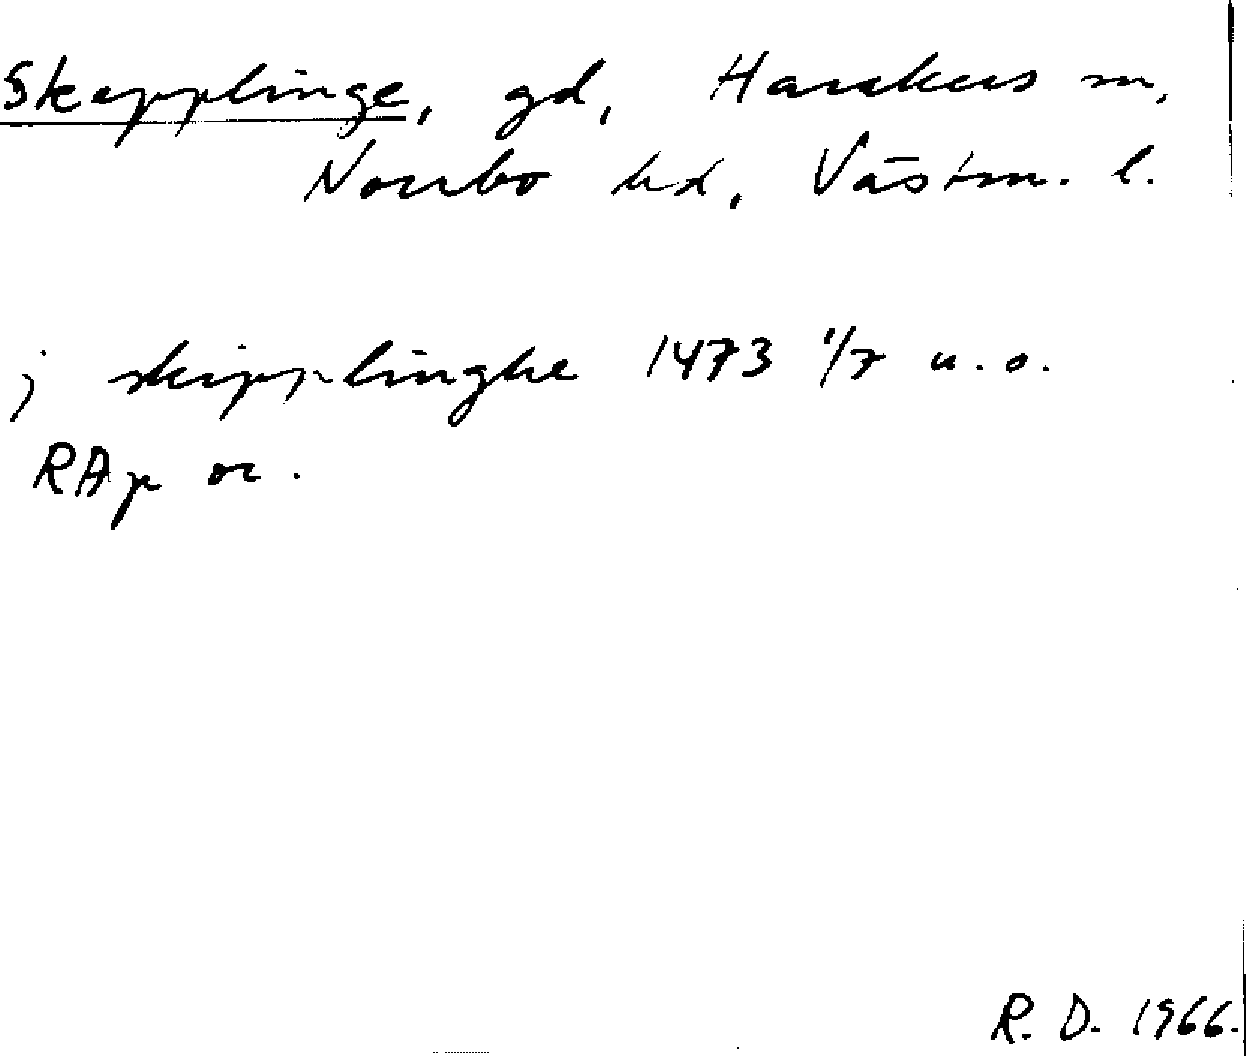 Skepplinge, gd, Harakers sn,
Norrbo hd, Västm. l.
j skipplinghe 1473 1/7 u.o.
RAp or.
R. D. 1966.